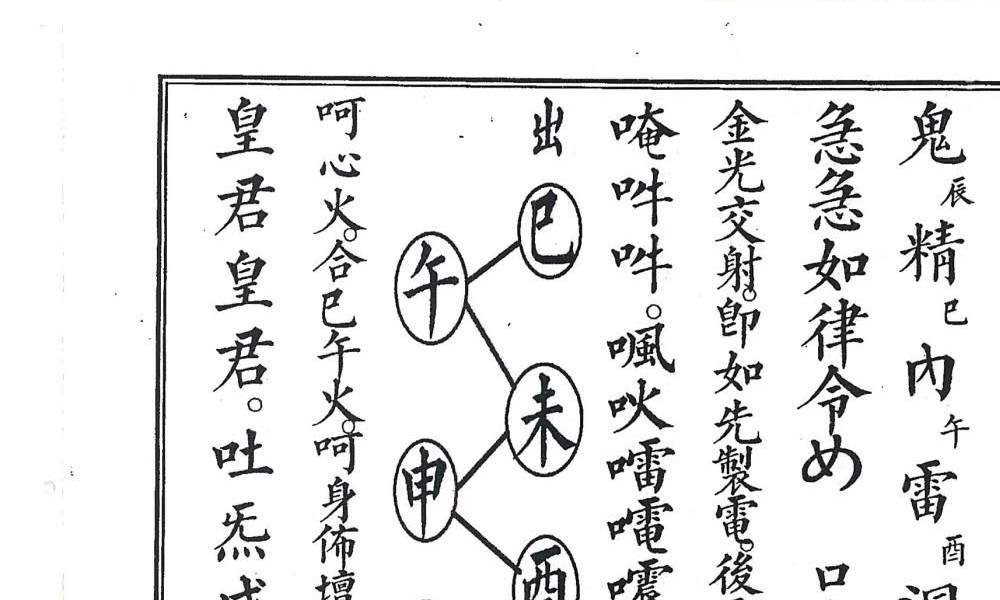 鬼辰精巳內午雷酉
急急如律令め
金光交射。卽如先製電。後
唵吽吽。㗢吙𡃷
出巳午未申酉
呵心火。合巳午火。呵身佈壇
皇君皇君。吐炁成